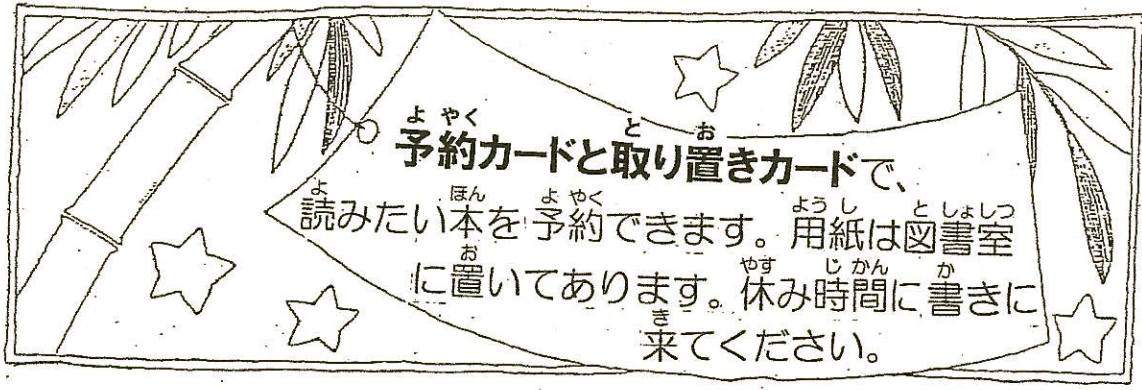 予約カードと取り置きカードで、
読みたい本を予約できます。用紙は図書室
に置いてあります。休み時間に書きに
来てください。